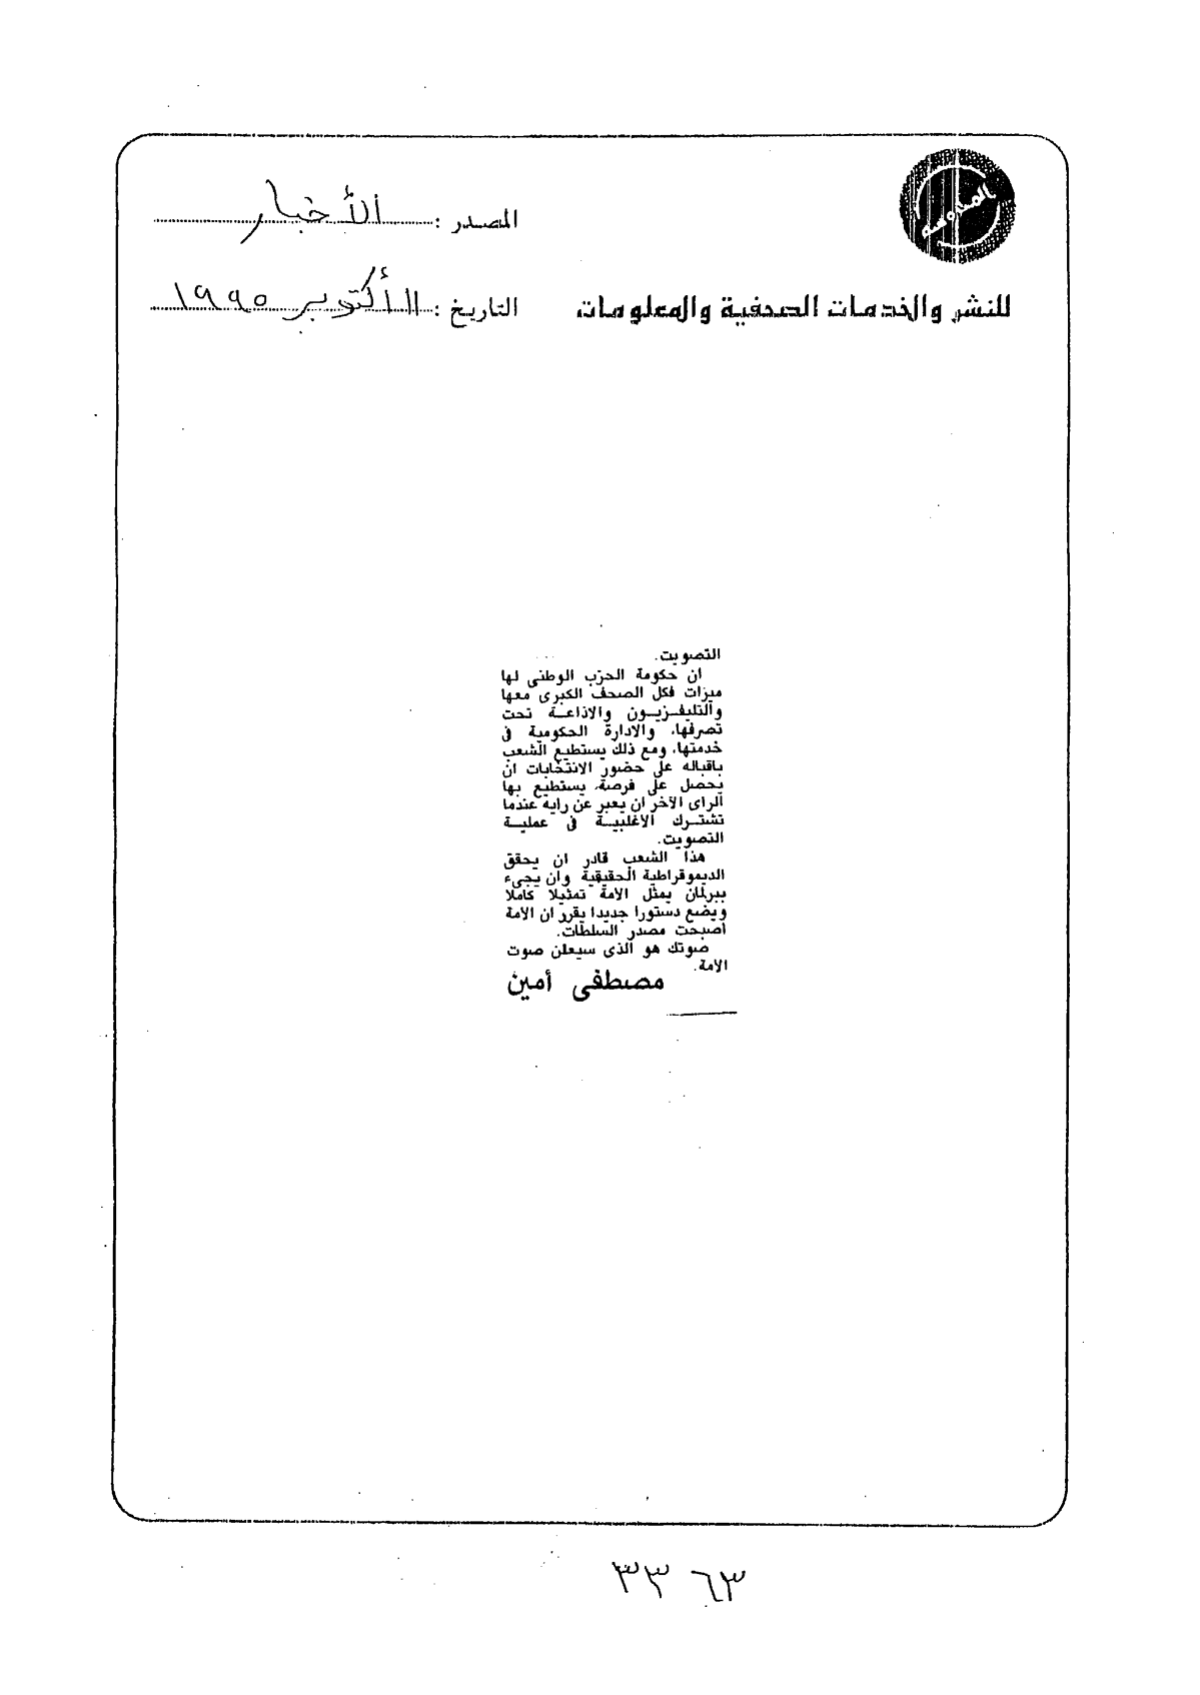 المصدر : الأخبار
للنشر والخدمات الصحفية والمعلومات
التاريخ : ١١ أكتوبر ١٩٩٥
التصويت.
ان حكومة الحزب الوطنى لها
ميزات فكل الصحف الكبرى معها
والتليفزيون والاذاعة تحت
تصرفها، والادارة الحكومية فى
خدمتها، ومع ذلك يستطيع الشعب
باقباله على حضور الانتخابات ان
يحصل على فرصة، يستطيع بها
الراى الآخر ان يعبر عن رايه عندما
تشترك الاغلبية فى عملية
التصويت.
هذا الشعب قادر ان يحقق
الديموقراطية الحقيقية وان يجىء
ببرلمان يمثل الامة تمثيلا كاملا
ويضع دستورا جديدا يقرر ان الامة
اصبحت مصدر السلطات.
صوتك هو الذى سيعلن صوت
الامة.
مصطفى أمين
٣٣ ٦٣